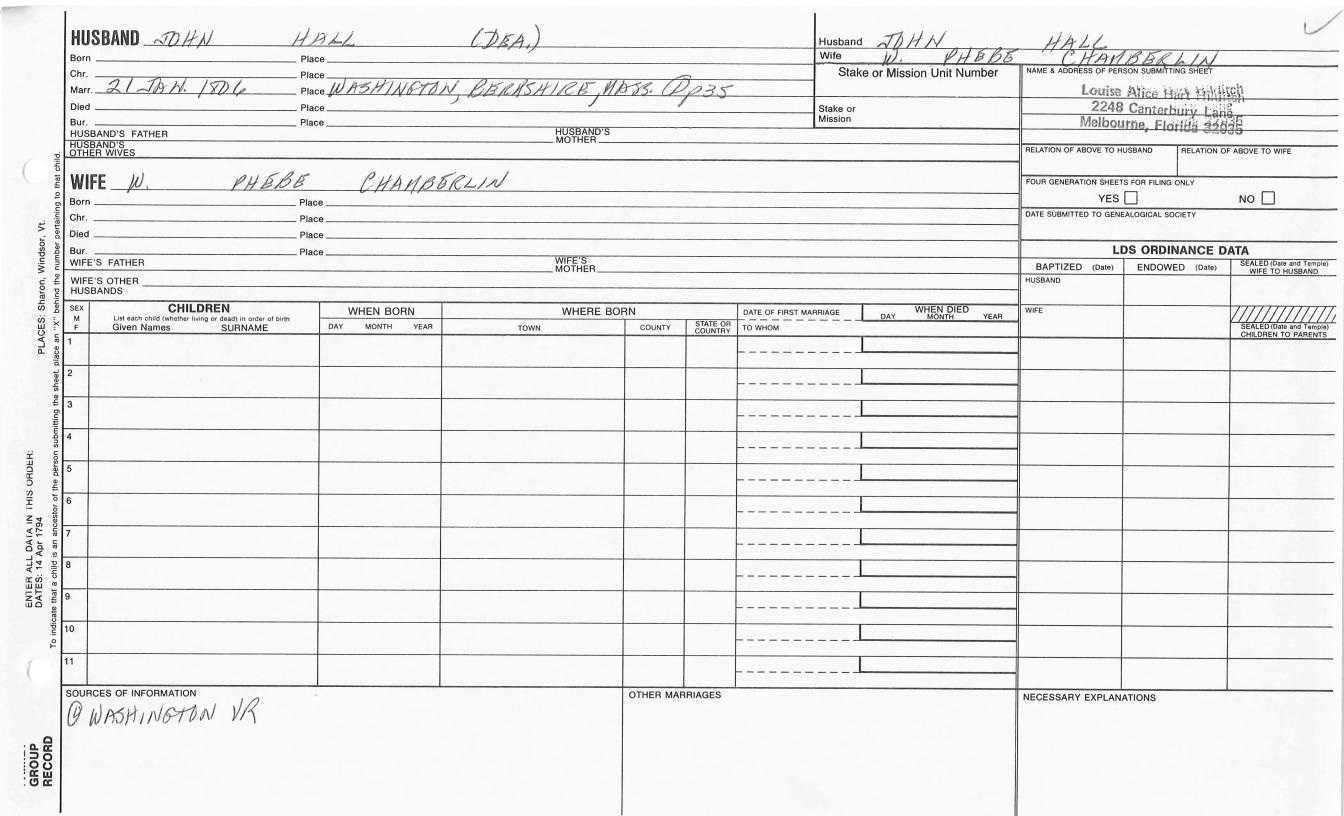 HUSBAND JOHN HALL (DEA.)
Born Place
Chr. Place
Marr. 21 JAN. 1806 Place WASHINGTON, BERKSHIRE, MASS. ① p35
Died Place
Bur. Place
HUSBAND'S FATHER HUSBAND'S MOTHER
HUSBAND'S OTHER WIVES
Husband JOHN HALL
Wife W. PHEBE CHAMBERLIN
Stake or Mission Unit Number
Stake or Mission
NAME & ADDRESS OF PERSON SUBMITTING SHEET
Louise Alice Hart
2248 Canterbury Lane
Melbourne, Florida
RELATION OF ABOVE TO HUSBAND RELATION OF ABOVE TO WIFE
FOUR GENERATION SHEETS FOR FILING ONLY
YES NO
DATE SUBMITTED TO GENEALOGICAL SOCIETY
WIFE W. PHEBE CHAMBERLIN
Born Place
Chr. Place
Died Place
Bur. Place
WIFE'S FATHER WIFE'S MOTHER
WIFE'S OTHER HUSBANDS
LDS ORDINANCE DATA
BAPTIZED (Date) ENDOWED (Date) SEALED (Date and Temple) WIFE TO HUSBAND
HUSBAND
WIFE
SEALED (Date and Temple) CHILDREN TO PARENTS
SEX M F
CHILDREN
List each child (whether living or dead) in order of birth
Given Names SURNAME
WHEN BORN
DAY MONTH YEAR
WHERE BORN
TOWN COUNTY STATE OR COUNTRY
DATE OF FIRST MARRIAGE
TO WHOM
WHEN DIED
DAY MONTH YEAR
1
2
3
4
5
6
7
8
9
10
11
SOURCES OF INFORMATION
① WASHINGTON VR
OTHER MARRIAGES
NECESSARY EXPLANATIONS
ENTER ALL DATA IN THIS ORDER:
DATES: 14 Apr 1794 PLACES: Sharon, Windsor, Vt.
To indicate that a child is an ancestor of the person submitting the sheet, place an "X" behind the number pertaining to that child.
GROUP
RECORD